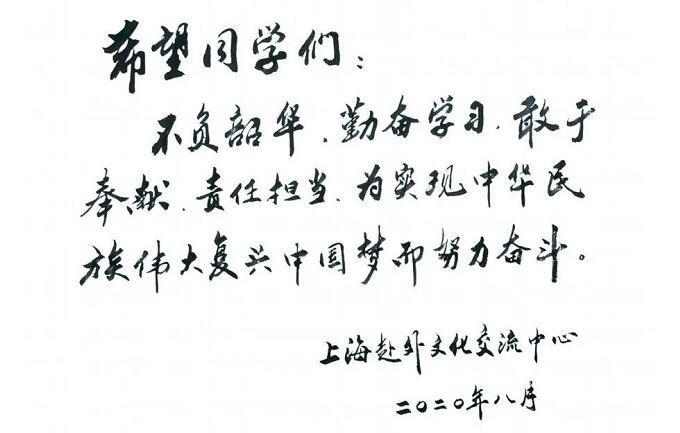 希望同学们：
不负韶华、勤奋学习、敢于
奉献、责任担当、为实现中华民
族伟大复兴中国梦而努力奋斗。
上海赴外文化交流中心
二〇二〇年八月